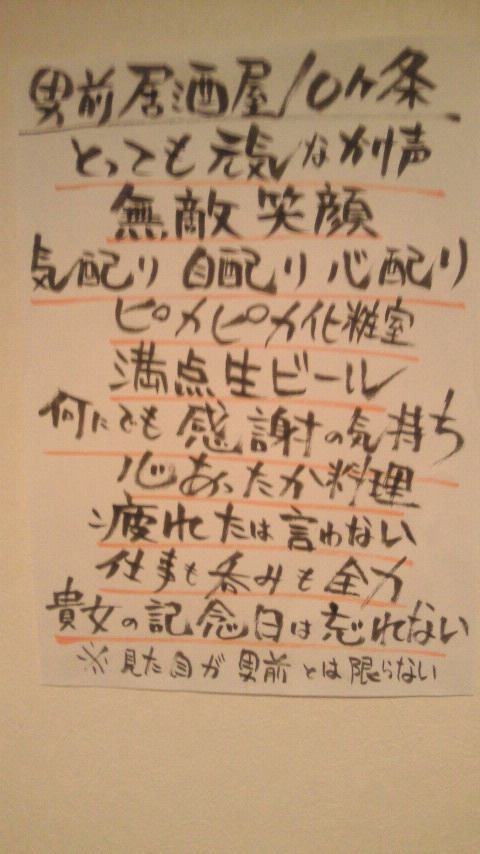 男前居酒屋10ヶ条
とっても元気な掛声
無敵笑顔
気配り 目配り 心配り
ピカピカ化粧室
満点生ビール
何にでも感謝の気持ち
心あったか料理
疲れたは言わない
仕事も呑みも全力
貴女の記念日は忘れない
※見た目が男前とは限らない